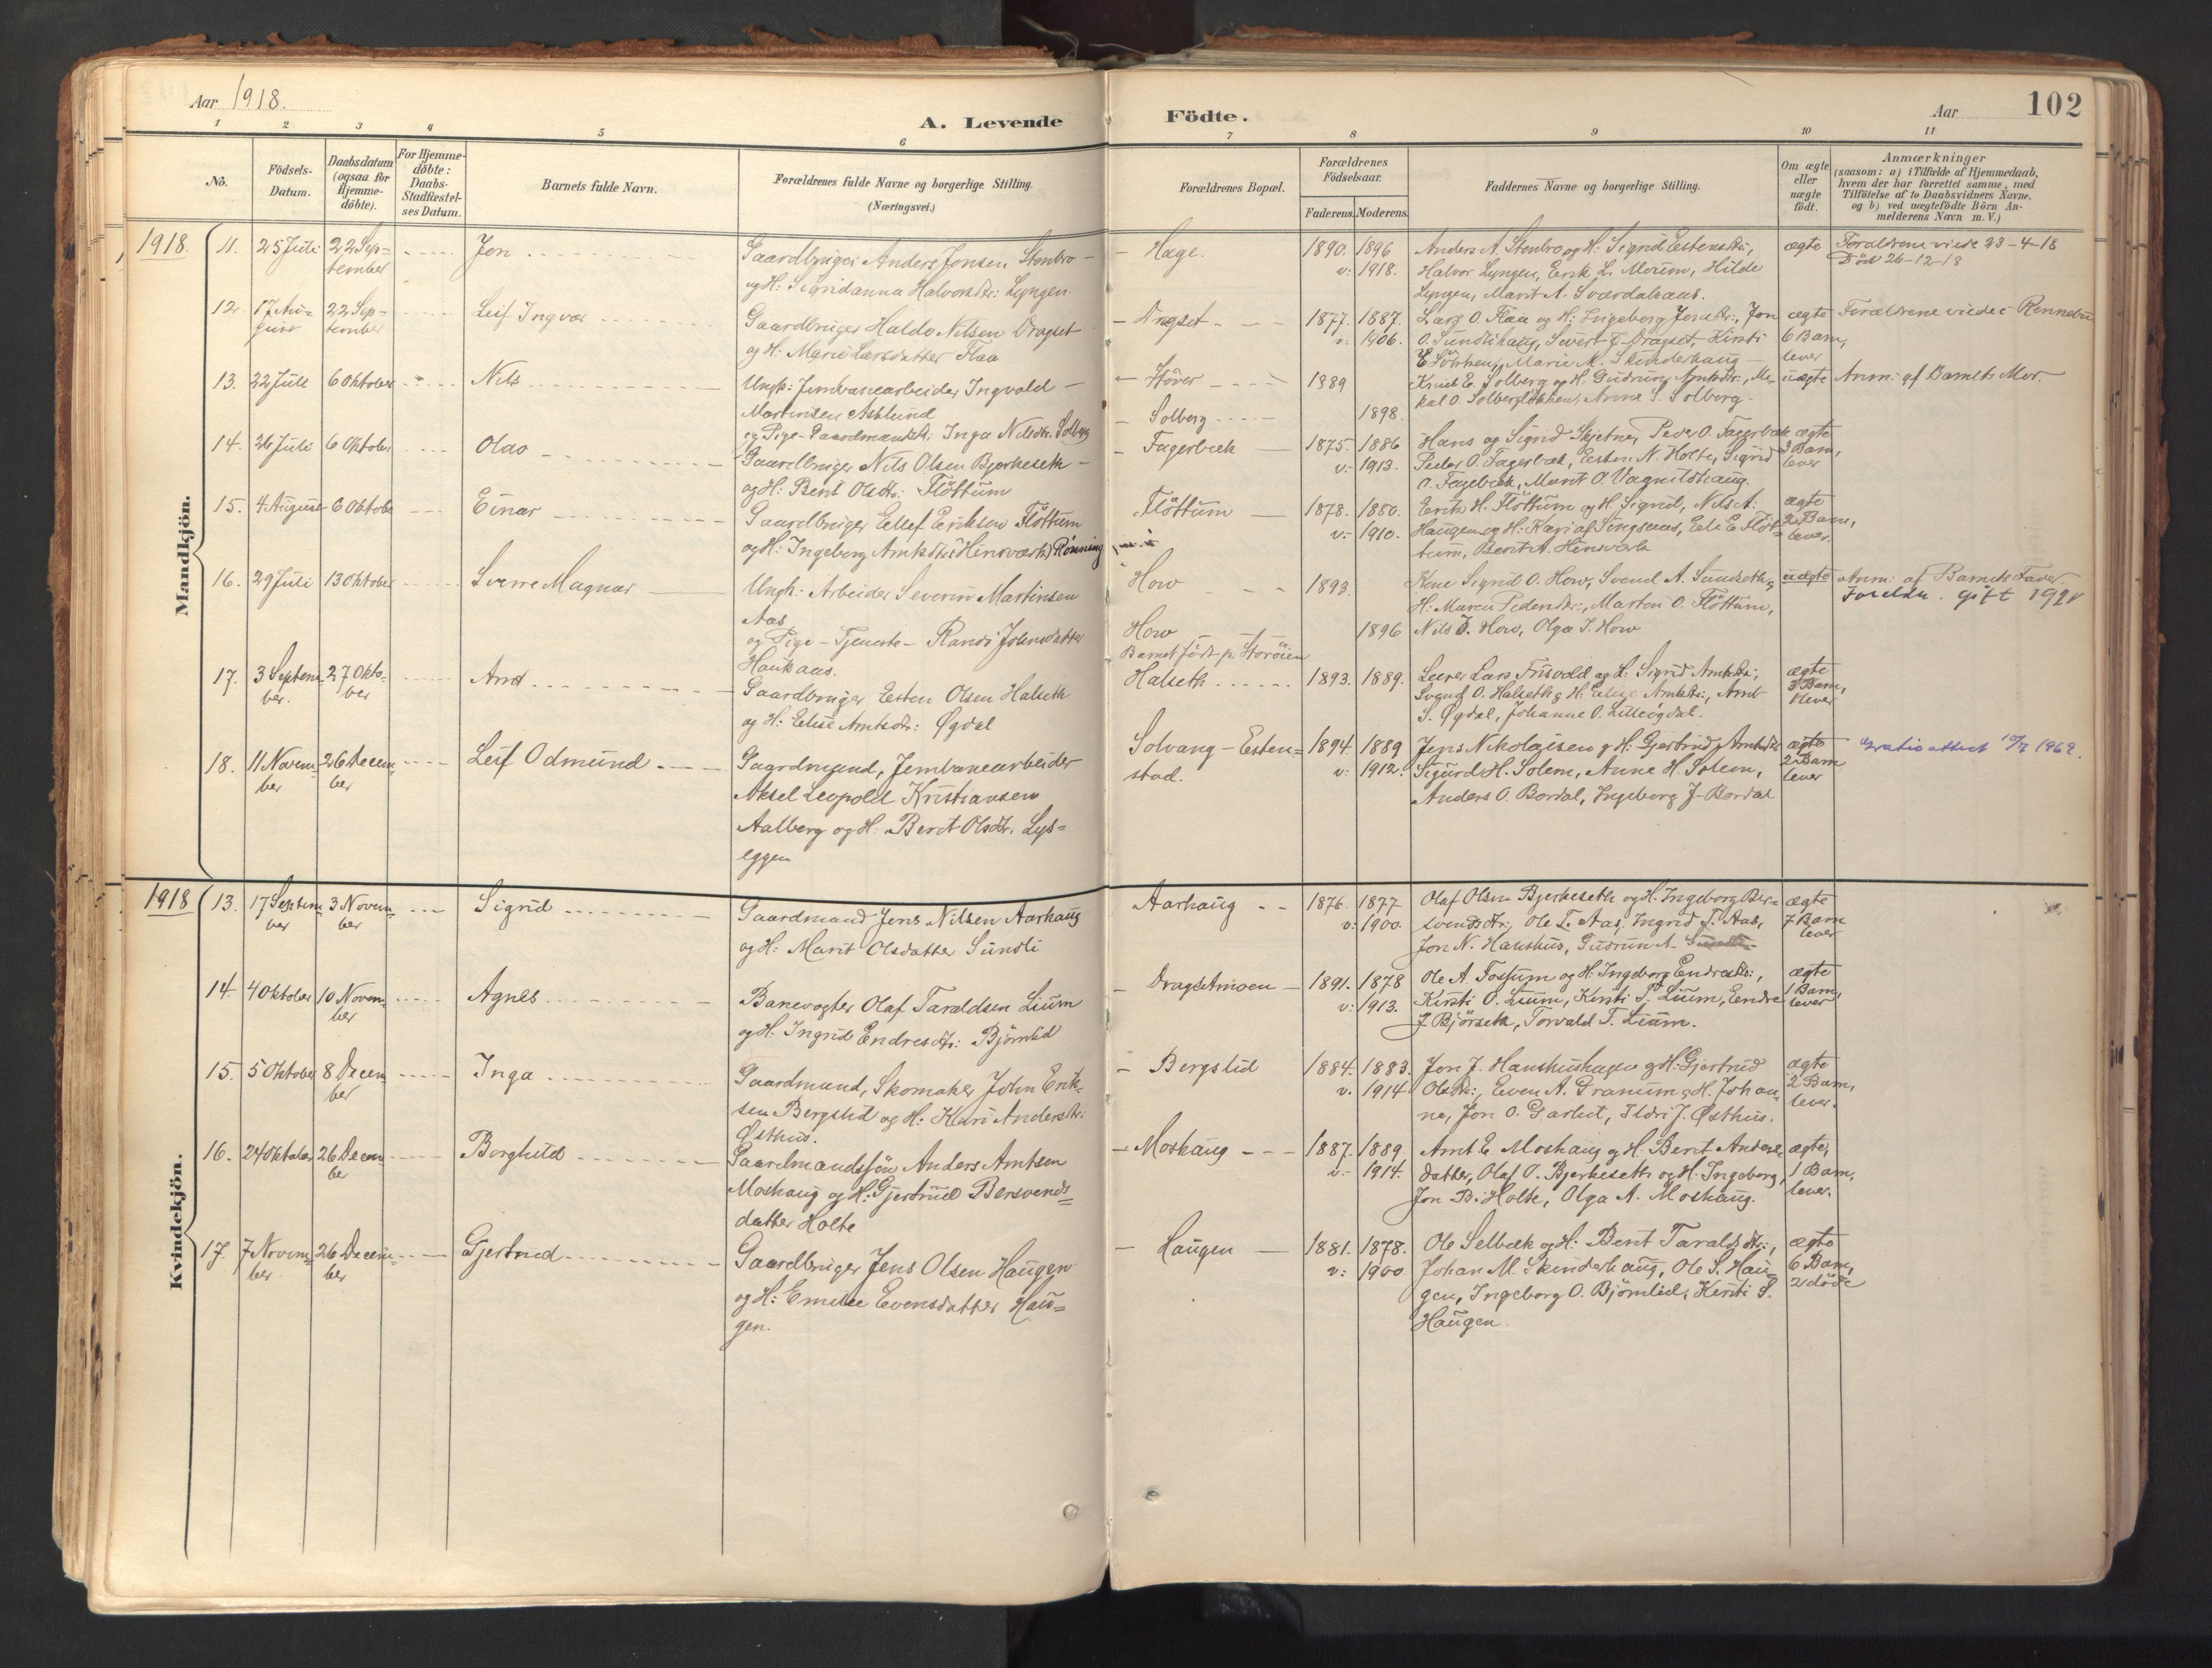 Aar 1918.
A. Levende
Födte.
Aar
102
1
2
3
4
5
6
7
8
9
10
11
No.
Födsels-
Datum.
Daabsdatum
(ogsaa for
Hjemme-
döbte).
For Hjemme-
döbte:
Daabs-
Stadfæstel-
ses Datum.
Barnets fulde Navn.
Forældrenes fulde Navne og borgerlige Stilling.
(Næringsvei.)
Forældrenes Bopæl.
Forældrenes
Födselsaar.
Faderens.
Moderens.
Faddernes Navne og borgerlige Stilling.
Om ægte
eller
uægte
födt.
Anmærkninger
(saasom: a) i Tilfælde af Hjemmedaab,
hvem der har forrettet samme, med
Tilföielse af to Daabsvidners Navne.
og b) ved uægtefödte Börn An-
melderens Navn m. V.)
Mandkjön.
1918.
11. 25 Juli 22 Sep-
tember
Jon
Gaardbruger Anders Jonsen Stenbro
og H: Sigridanna Halvorsdtr: Lyngen
Hage.
1890. 1896
v: 1918.
Anders A. Stenbro og H: Sigrid Estensdtr:,
Halvor Lyngen, Erik L. Moum, Hilde
Lyngen, Marit A. Sværdalsaas.
ægte
Forældrene viede 23-4-18
Död 26-12-18
12. 17 Au-
gust
22 Sep-
tember
Leif Ingvar
Gaardbruger Haldo Nilsen Dragset
og H: Marie Larsdatter Flaa
Dragset
1877. 1887.
v: 1906.
Lars O. Flaa og H: Ingeborg Jonsdtr:, Jon
O. Sundlihaug, Sivert J. Dragset, Kirsti
E. Løkken, Marie M. Skinderhaug
ægte
6 Barn,
lever
Forældrene viede i Rennebu
13. 22 Juli 6 Oktober
Nils
Ungk: Jernbanearbeider Ingvald
Martinsen Asklund
og Pige-Gaardmandsdtr: Inga Nilsdtr. Solberg
Støver
Solberg
1889
1898.
Knut E. Solberg og H: Gudrun Arntsdtr:, Mi-
kal O. Solbergløkken, Anne S. Solberg
uægte
Anm: af Barnets Mor.
14. 26 Juli 6 Oktober
Olav
Gaardbruger Nils Olsen Bjerkeseth
og H: Berit Olsdtr: Fløttum
Fagerbæk
1875. 1886
v: 1913.
Hans og Sigrid Skjetne, Peder O. Fagerbæk
Peder O. Fagerbæk, Esten N. Holte, Sigrid
O. Fagerbæk, Marit O. Vagnildhaug.
ægte
3 Barn,
lever
15. 4 August 6 Oktober
Einar
Gaardbruger Ellef Eriksen Fløttum
og H: Ingeborg Arntsdtr: (Hinsværk) Rønning
Fløttum
1878. 1880.
v: 1910.
Erik H. Fløttum og H: Sigrid, Nils A.
Haugen og H: Kari af Singsaas, Eli E. Fløt-
tum, Berit A. Hinsværk
ægte
2 Barn,
lever.
16. 29 Juli 13 Oktober
Sverre Magnar
Ungk: Arbeider Severin Martinsen
Aas
og Pige-Tjeneste- Randi Johnsdatter
Haukaas.
How
How
Barnet født på Storøien
1893.
1896
Kone Sigrid O. How, Svend A. Sundseth og
H: Maren Pedersdtr:, Marten O. Fløttum,
Nils J. How, Olga J. How
uægte
Anm: af Barnets Fader.
Foreldr. gift 192
17. 3 Septem-
ber.
27 Okto-
ber
Arnt
Gaardbruger Esten Olsen Halseth
og H: Elise Arntsdtr: Øgdal
Halseth
1893. 1889.
Lærer Lars Frisvold og H: Sigrid Arntsdtr:,
Svend O. Halseth og H: Elise Arntsdtr:, Arnt
S. Øgdal, Johanne O. Lilleøgdal.
ægte
3 Barn,
1 lever
18. 11 Novem-
ber
26 Decem-
ber
Leif Odmund
Gaardmand, Jernbanearbeider
Aksel Leopold Kristiansen
Aalberg og H: Berit Olsdtr: Lys-
eggen
Solvang - Esten-
stad.
1894. 1889
v: 1912.
Jens Nikolaisen og H: Gjertrud Arntsdtr
Sigurd H. Solem, Anne H. Solem,
Anders O. Bordal, Ingeborg J. Bordal
ægte
2 Barn
lever
Gratisattest 10/7 1962.
Kvindekjön.
1918
13. 17 Septem-
ber
3 Novem-
ber
Sigrid
Gaardmand Jens Nilsen Aarhaug
og H: Marit Olsdatter Sundli
Aarhaug
1876. 1877
v: 1900.
Olaf Olsen Bjerkeseth og H. Ingeborg Ber-
svendsdtr:, Ole T. Aas, Ingrid T. Aas,
Jon N. Haukhus, Gudrun A. Sundli
ægte
7 Barn
lever
14. 4 Oktober 10 Novem-
ber
Agnes
Banevogter Olaf Taraldsen Lium
og H: Ingrid Endresdtr: Bjørnlid
Dragsetmoen
1891. 1878
v: 1913.
Ole A. Fossum og H: Ingeborg Endresdtr:,
Kirsti O. Lium, Kirsti T. Lium, Endre
J. Bjørseth, Torvald T. Lium.
ægte
1 Barn,
lever
15. 5 Oktober 8 Decem-
ber
Inga
Gaardmand, Skomaker John Erik-
sen Bergslid og H: Kari Andersdtr:
Østhus.
Bergslid
1884. 1883.
v. 1914
Jon J. Haukhushagen og H: Gjertrud
Olsdtr:, Even A. Granum og H. Johan-
ne, Jon O. Garlid, Ildri J. Østhus.
ægte
2 Barn,
lever.
16. 24 Oktober 26 Decem-
ber
Borghild
Gaardmandssøn Anders Arntsen
Moshaug og H: Gjertrud Bersvends-
datter Holte
Moshaug
1887. 1889.
v: 1914.
Arnt E. Moshaug og H: Berit Anders-
datter, Olaf O. Bjerkeseth og H: Ingeborg,
Jon B. Holte, Olga A. Moshaug.
ægte,
1 Barn,
lever.
17. 7 Novem-
ber
26 Decem-
ber
Gjertrud
Gaardbruger Jens Olsen Haugen
og H: Emelie Evensdatter Hau-
gen.
Haugen
1881. 1878.
v: 1900
Ole Selbæk og H: Berit Taraldsdtr:,
Johan M. Skinderhaug, Ole S. Hau-
gen, Ingeborg O. Bjørnlid, Kirsti S.
Haugen
ægte
6 Barn,
2 døde